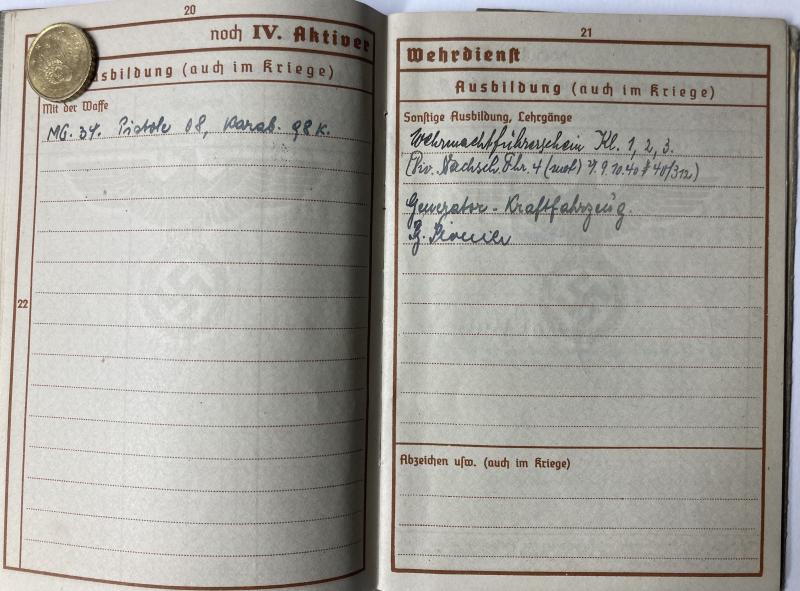 20
noch IV. Aktiver
Ausbildung (auch im Kriege)
Mit der Waffe
MG. 34. Pistole 08, Karab. 98 K.
22
21
Wehrdienst
Ausbildung (auch im Kriege)
Sonstige Ausbildung, Lehrgänge
Wehrmachtführerschein Kl. 1, 2, 3.
(Div. Nachsch. Fhr. 4 (mot) 9.10.40 40/312)
Generator - Kraftfahrzeug.
Pionier
Abzeichen usw. (auch im Kriege)